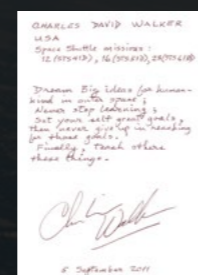 CHARLES DAVID WALKER
USA
Space Shuttle missions:
12 (STS41D), 16 (STS51D), 23 (STS61B)
Dream Big ideas for human-
kind in outer space;
Never stop learning;
Set your self great goals,
then never give up in reaching
for those goals.
Finally, teach others
these things.
5 September 2011